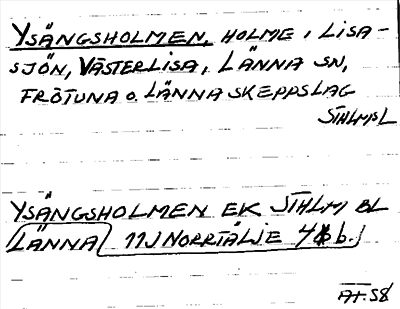 YSÄNGSHOLMEN, HOLME I LISA-
SJÖN, VÄSTERLISA, LÄNNA SN,
FRÖTUNA O. LÄNNA SKEPPSLAG
STHLMSL
YSÄNGSHOLMEN EK STHLM BL
LÄNNA 11J NORRTÄLJE 4 b.
AT. 58